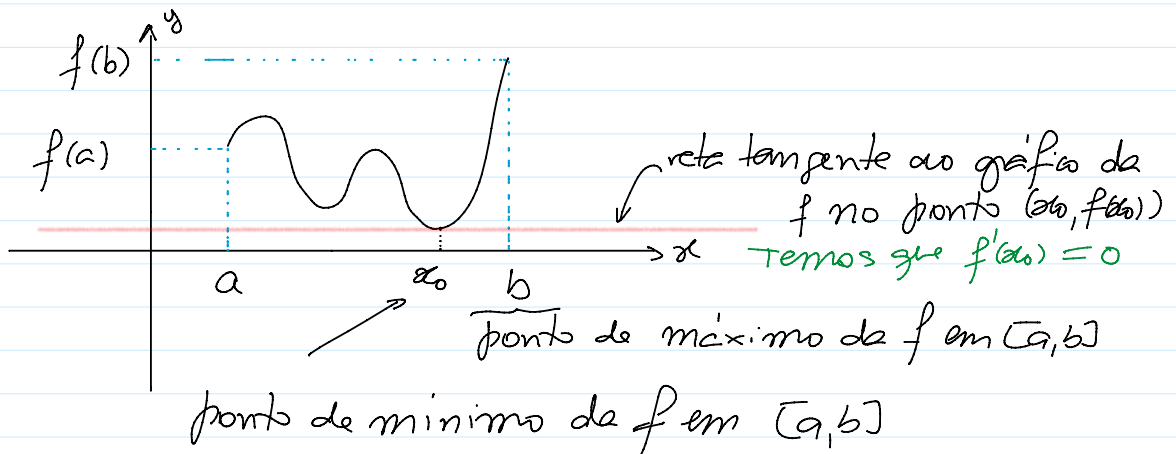 y
f(b)
f(a)
reta tangente ao gráfico da
f no ponto (x₀, f(x₀))
Temos que f'(x₀) = 0
x
a
x₀
b
ponto de máximo da f em [a,b]
ponto de mínimo da f em [a,b]